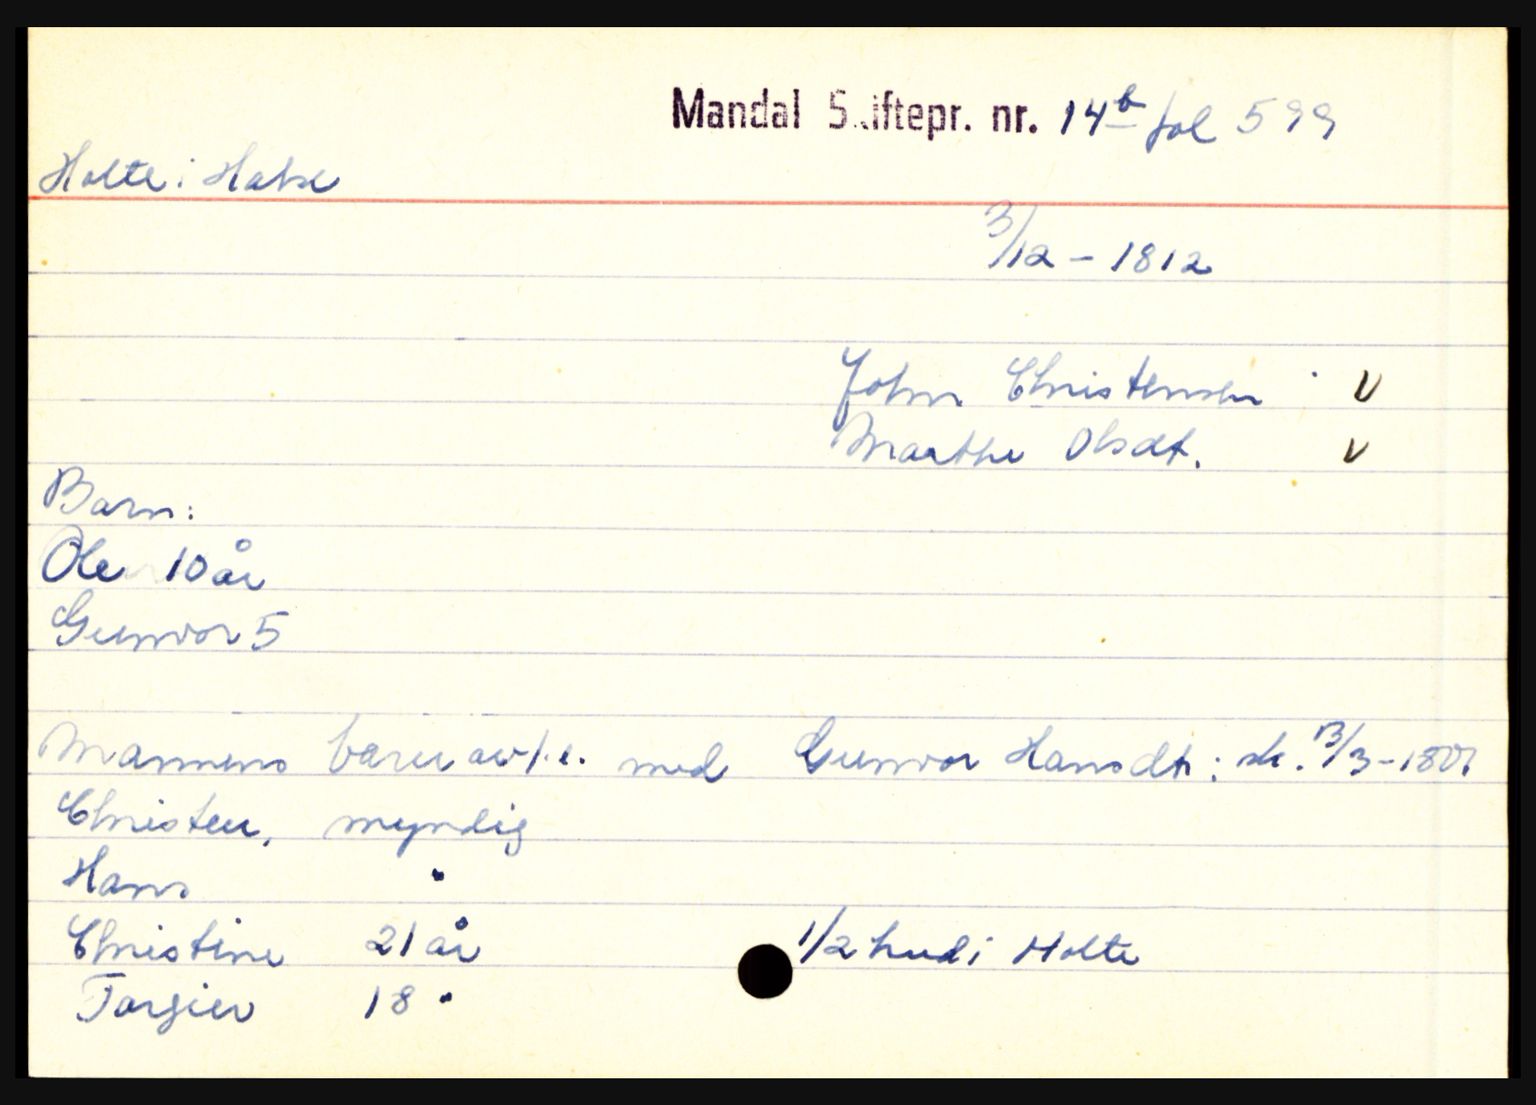 Mandal Skiftepr. nr. 14b fol 599
Holte i Halse
3/12 - 1812
John Christensen v
Marthe Olsdt. v
Barn:
Ole 10 år
Gunvor 5
Mannens barn av 1. e. med Gunvor Hansdt; sk. 13/3-1801
Christen, myndig
Hans "
Christine 21 år 1/2 hud i Holte
Torgier 18 "